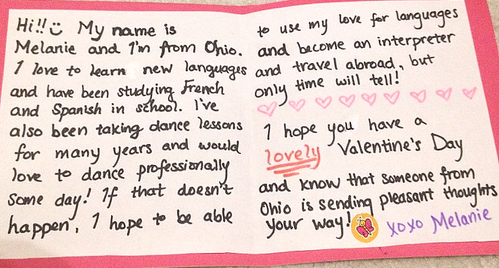 Hi!! My name is
Melanie and I'm from Ohio.
I love to learn new languages
and have been studying French
and Spanish in school. I've
also been taking dance lessons
for many years and would
love to dance professionally
some day! If that doesn't
happen, I hope to be able
to use my love for languages
and become an interpreter
and travel abroad, but
only time will tell!
I hope you have a
lovely Valentine's Day
and know that someone from
Ohio is sending pleasant thoughts
your way! xoxo Melanie